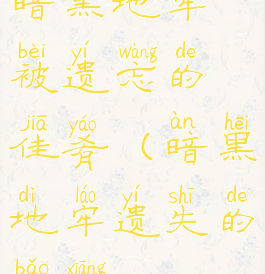 暗黑地牢
bèi yí wàng de
被遗忘的
jiā yáo àn hēi
佳肴（暗黑
dì láo yí shī de
地牢遗失的
bǎo xiāng